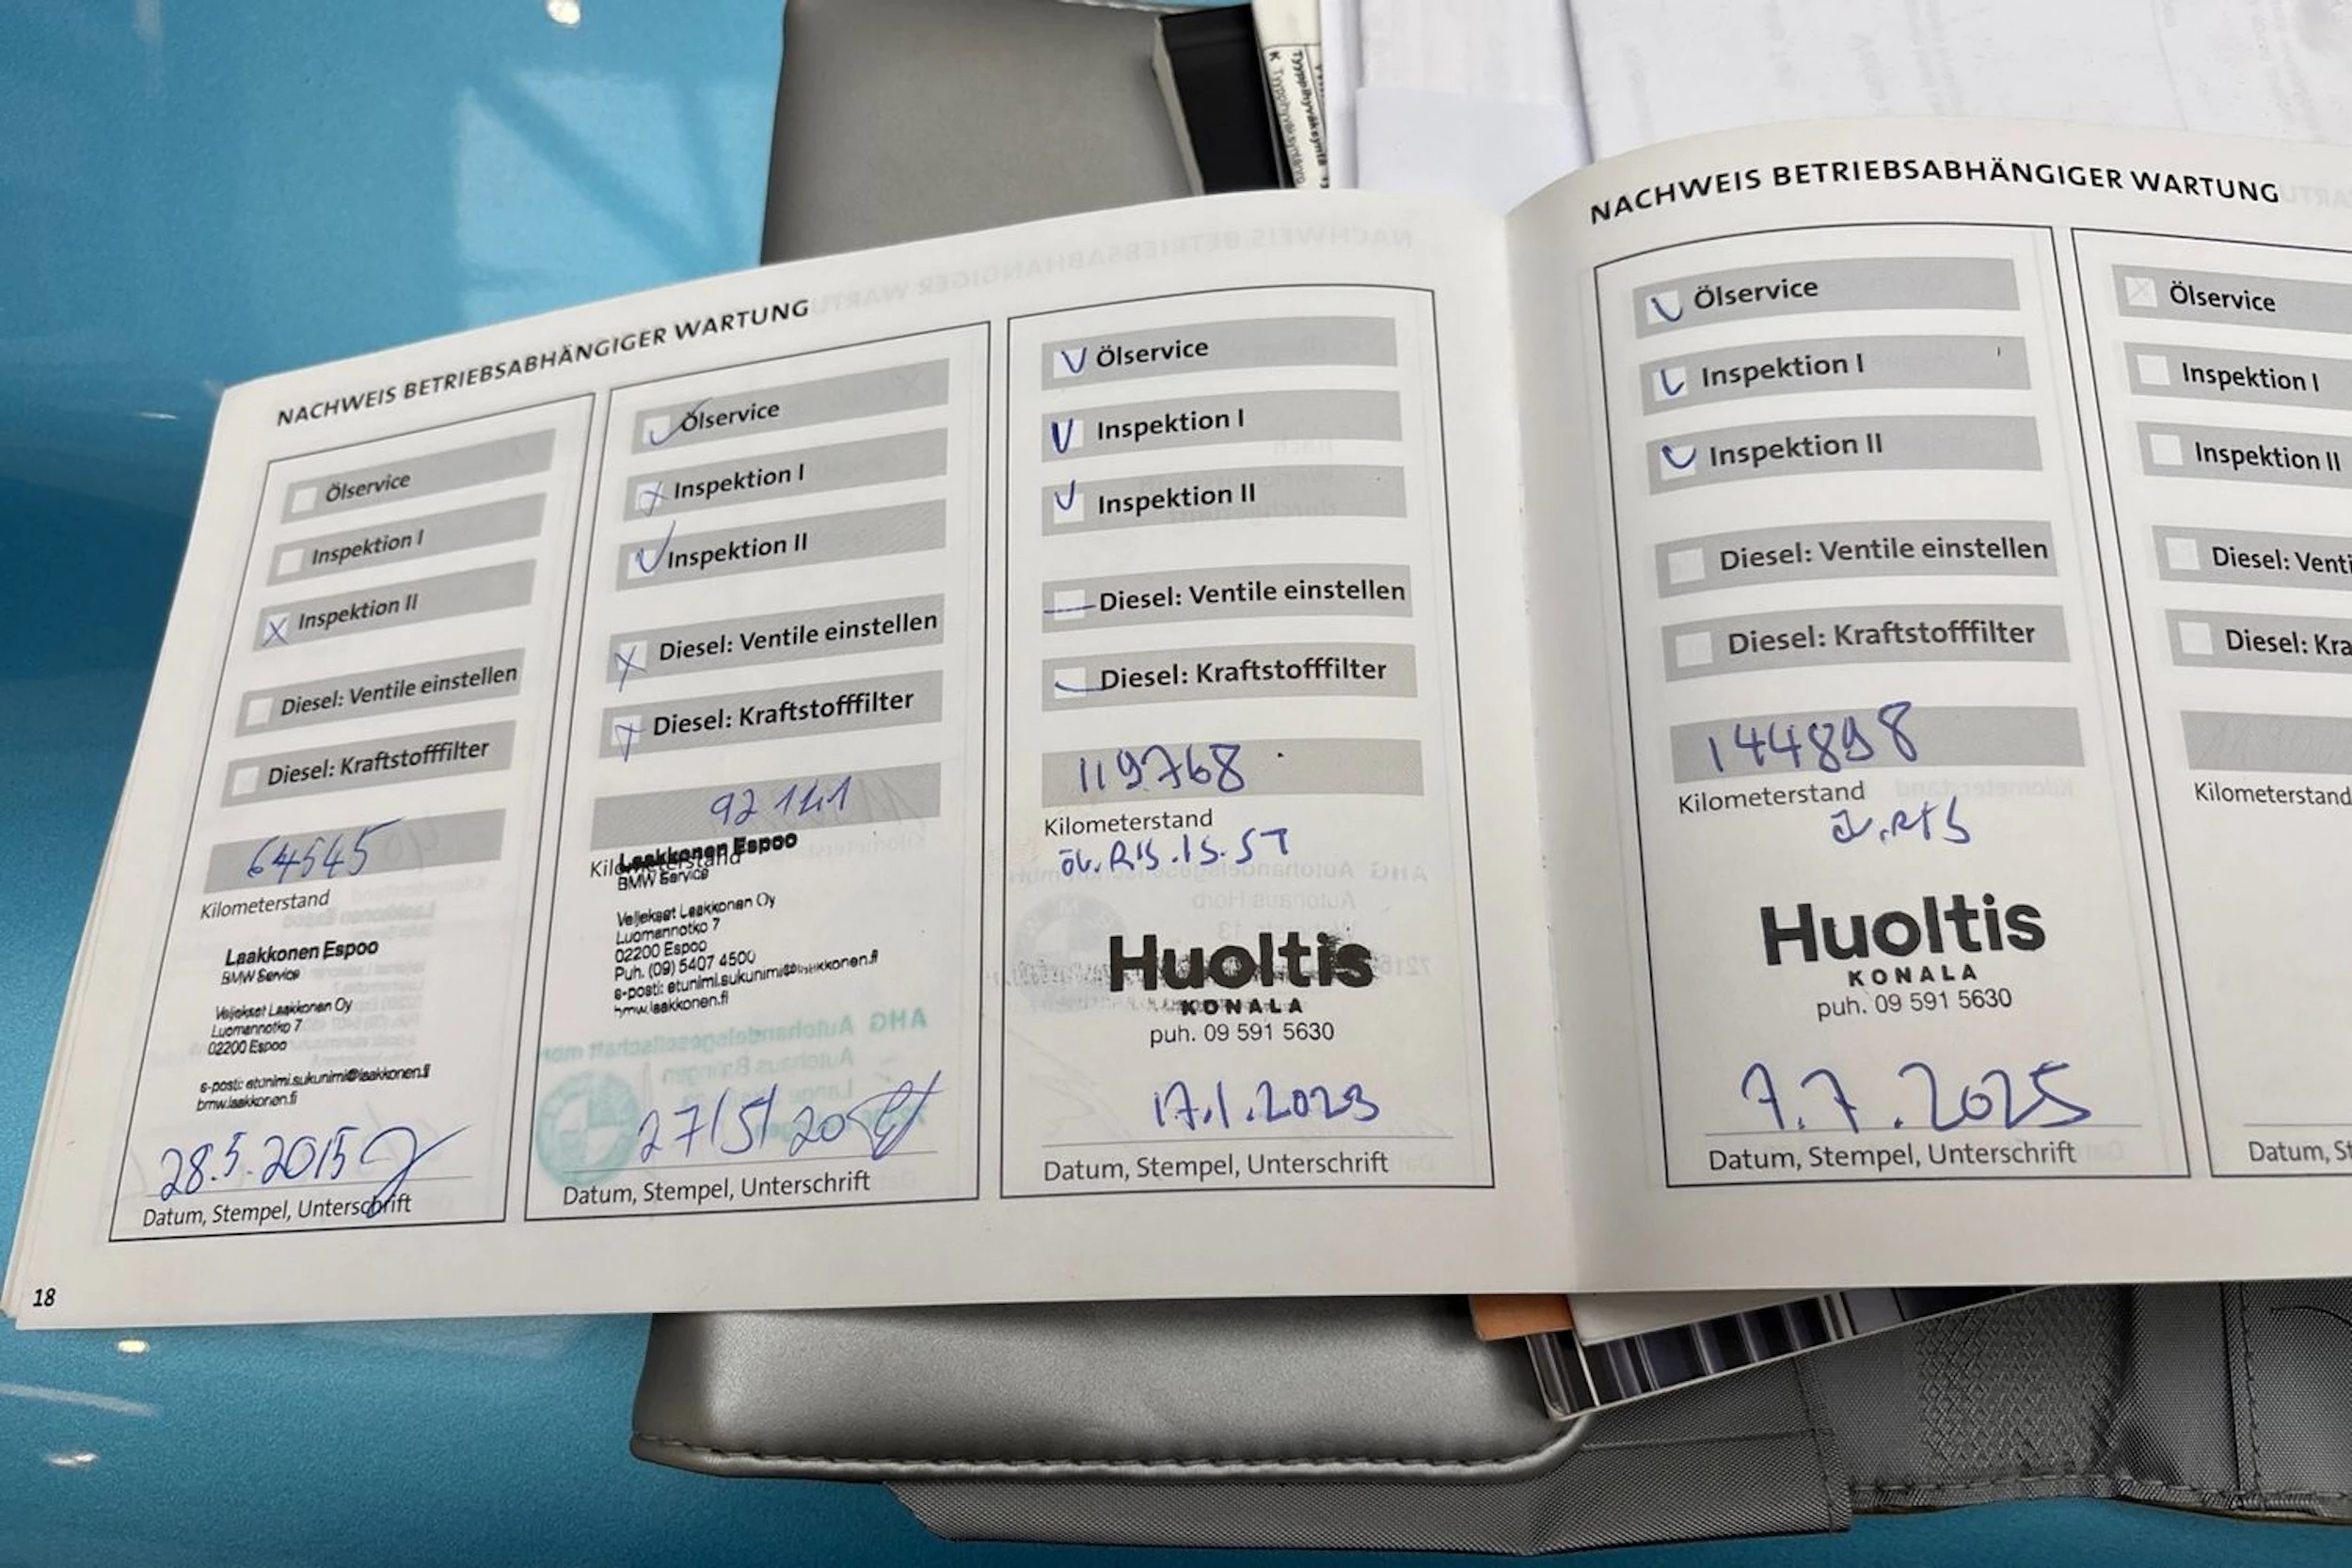 Tyyppihyväksyntä
NACHWEIS BETRIEBSABHÄNGIGER WARTUNG
Ölservice
Inspektion I
Inspektion II
Diesel: Ventile einstellen
Diesel: Kraftstofffilter
64545
Kilometerstand
Laakkonen Espoo
BMW Service
Veljekset Laakkonen Oy
Luomannotko 7
02200 Espoo
s-posti: etunimi.sukunimi@laakkonen.fi
bmw.laakkonen.fi
28.5.2015
Datum, Stempel, Unterschrift
18
Ölservice
Inspektion I
Inspektion II
Diesel: Ventile einstellen
Diesel: Kraftstofffilter
92141
Kilometerstand
Laakkonen Espoo
BMW Service
Veljekset Laakkonen Oy
Luomannotko 7
02200 Espoo
Puh. (09) 5407 4500
s-posti: etunimi.sukunimi@laakkonen.fi
bmw.laakkonen.fi
27/5/20
Datum, Stempel, Unterschrift
Ölservice
Inspektion I
Inspektion II
Diesel: Ventile einstellen
Diesel: Kraftstofffilter
119768
Kilometerstand
Huoltis
KONALA
puh. 09 591 5630
17.1.2023
Datum, Stempel, Unterschrift
NACHWEIS BETRIEBSABHÄNGIGER WARTUNG
Ölservice
Inspektion I
Inspektion II
Diesel: Ventile einstellen
Diesel: Kraftstofffilter
144898
Kilometerstand
Huoltis
KONALA
puh. 09 591 5630
7.7.2025
Datum, Stempel, Unterschrift
Ölservice
Inspektion I
Inspektion II
Diesel: Venti
Diesel: Kra
Kilometerstand
Datum, St